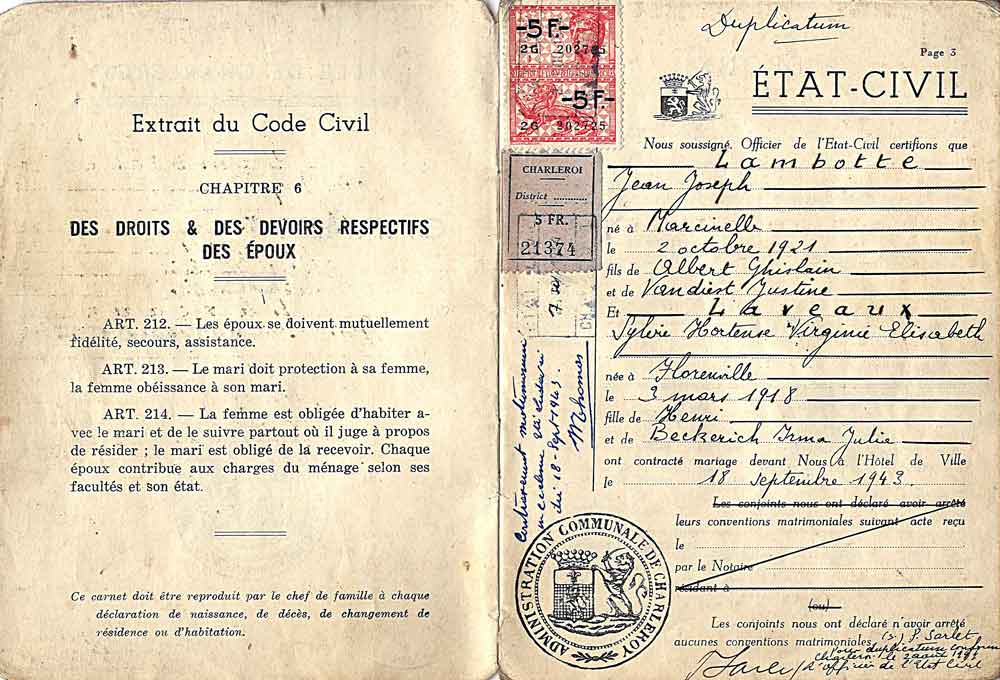 Extrait du Code Civil
CHAPITRE 6
DES DROITS & DES DEVOIRS RESPECTIFS
DES ÉPOUX
ART. 212. — Les époux se doivent mutuellement
fidélité, secours, assistance.
ART. 213. — Le mari doit protection à sa femme,
la femme obéissance à son mari.
ART. 214. — La femme est obligée d'habiter a-
vec le mari et de le suivre partout où il juge à propos
de résider ; le mari est obligé de la recevoir. Chaque
époux contribue aux charges du ménage selon ses
facultés et son état.
Ce carnet doit être reproduit par le chef de famille à chaque
déclaration de naissance, de décès, de changement de
résidence ou d'habitation.
-5 F.-
2G 202725
-5 F.-
2G 202725
CHARLEROI
District
5 FR.
21374
du 18-Sept 1943.
Thomas
ADMINISTRATION COMMUNALE DE CHARLEROY
Duplicatum
Page 3
ÉTAT-CIVIL
Nous soussigné, Officier de l'Etat-Civil certifions que
Lambotte
Jean Joseph
né à Marcinelle
le 2 octobre 1921
fils de Albert Ghislain
et de Vandiest Justine
Et Laveaux
Sylvie Hortense Virginie Elisabeth
née à Florenville
le 3 mars 1918
fille de Henri
et de Beckerich Irma Julie
ont contracté mariage devant Nous à l'Hôtel de Ville
le 18 septembre 1943.
Les conjoints nous ont déclaré avoir arrêté
leurs conventions matrimoniales suivant acte reçu
le
par le Notaire
résidant à
(ou)
Les conjoints nous ont déclaré n'avoir arrêté
aucunes conventions matrimoniales. (s) P. Sarlet
Pour duplicatum conforme
L'officier de l'Etat Civil